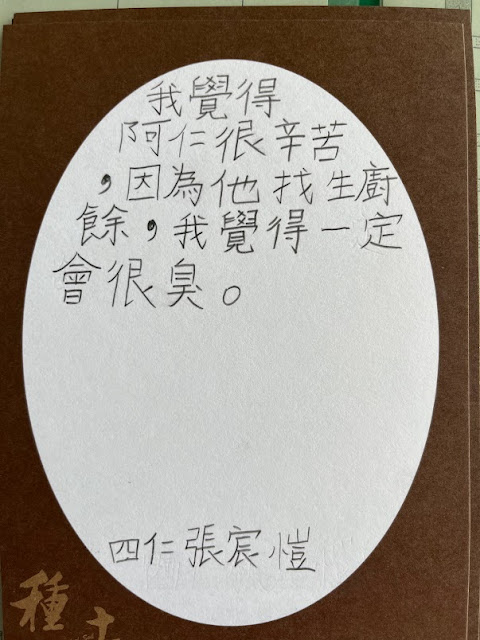 我覺得
阿仁很辛苦
，因為他找生廚
餘，我覺得一定
會很臭。
四仁張宸愷
種土